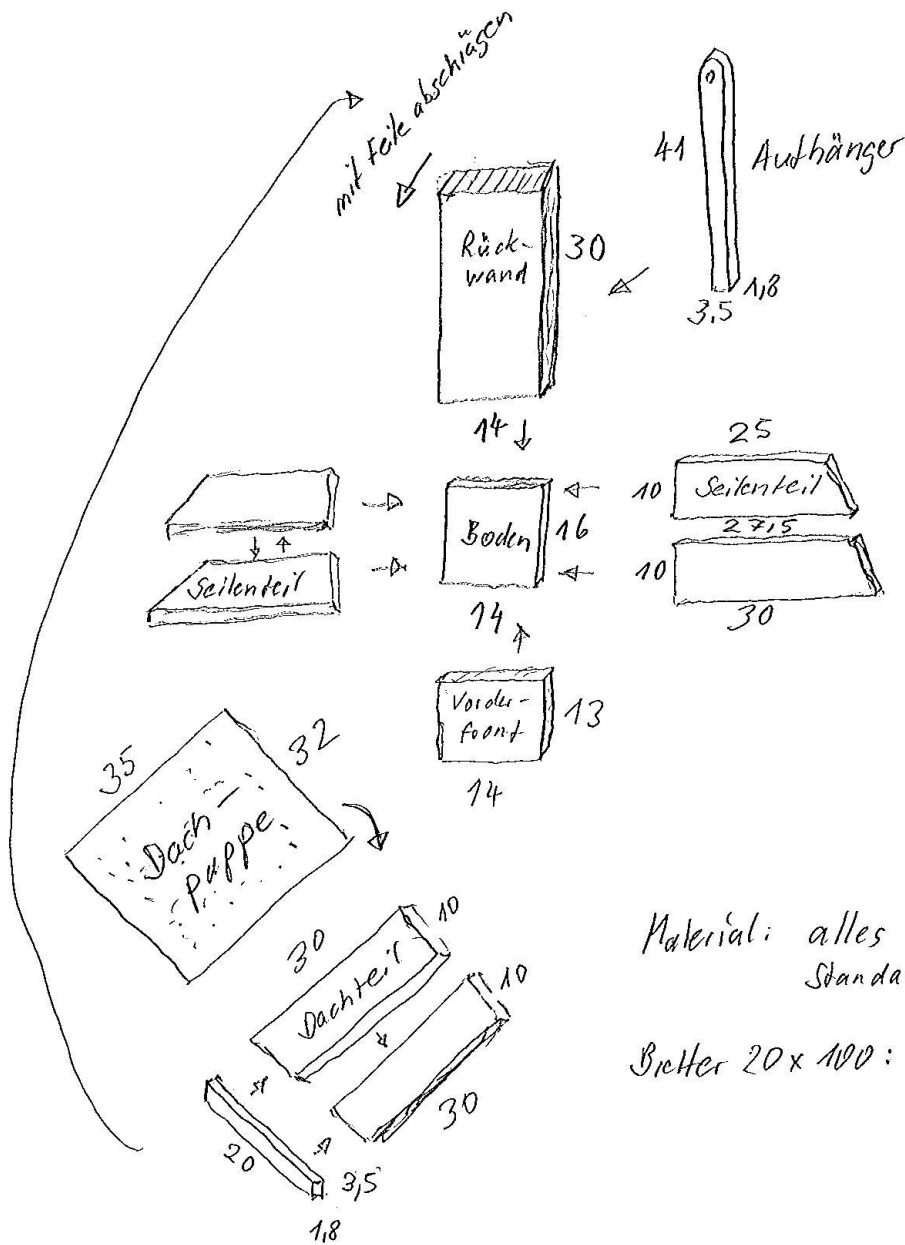 mit Feile abschrägen
41
Aufhänger
Rück-
wand
30
1,8
3,5
14
25
10
Seitenteil
27,5
Boden
16
10
Seitenteil
14
30
Vorder-
front
13
14
35
32
Dach-
pappe
10
30
Dachteil
10
30
20
3,5
1,8
Material: alles
Standa
Bretter 20 x 100: